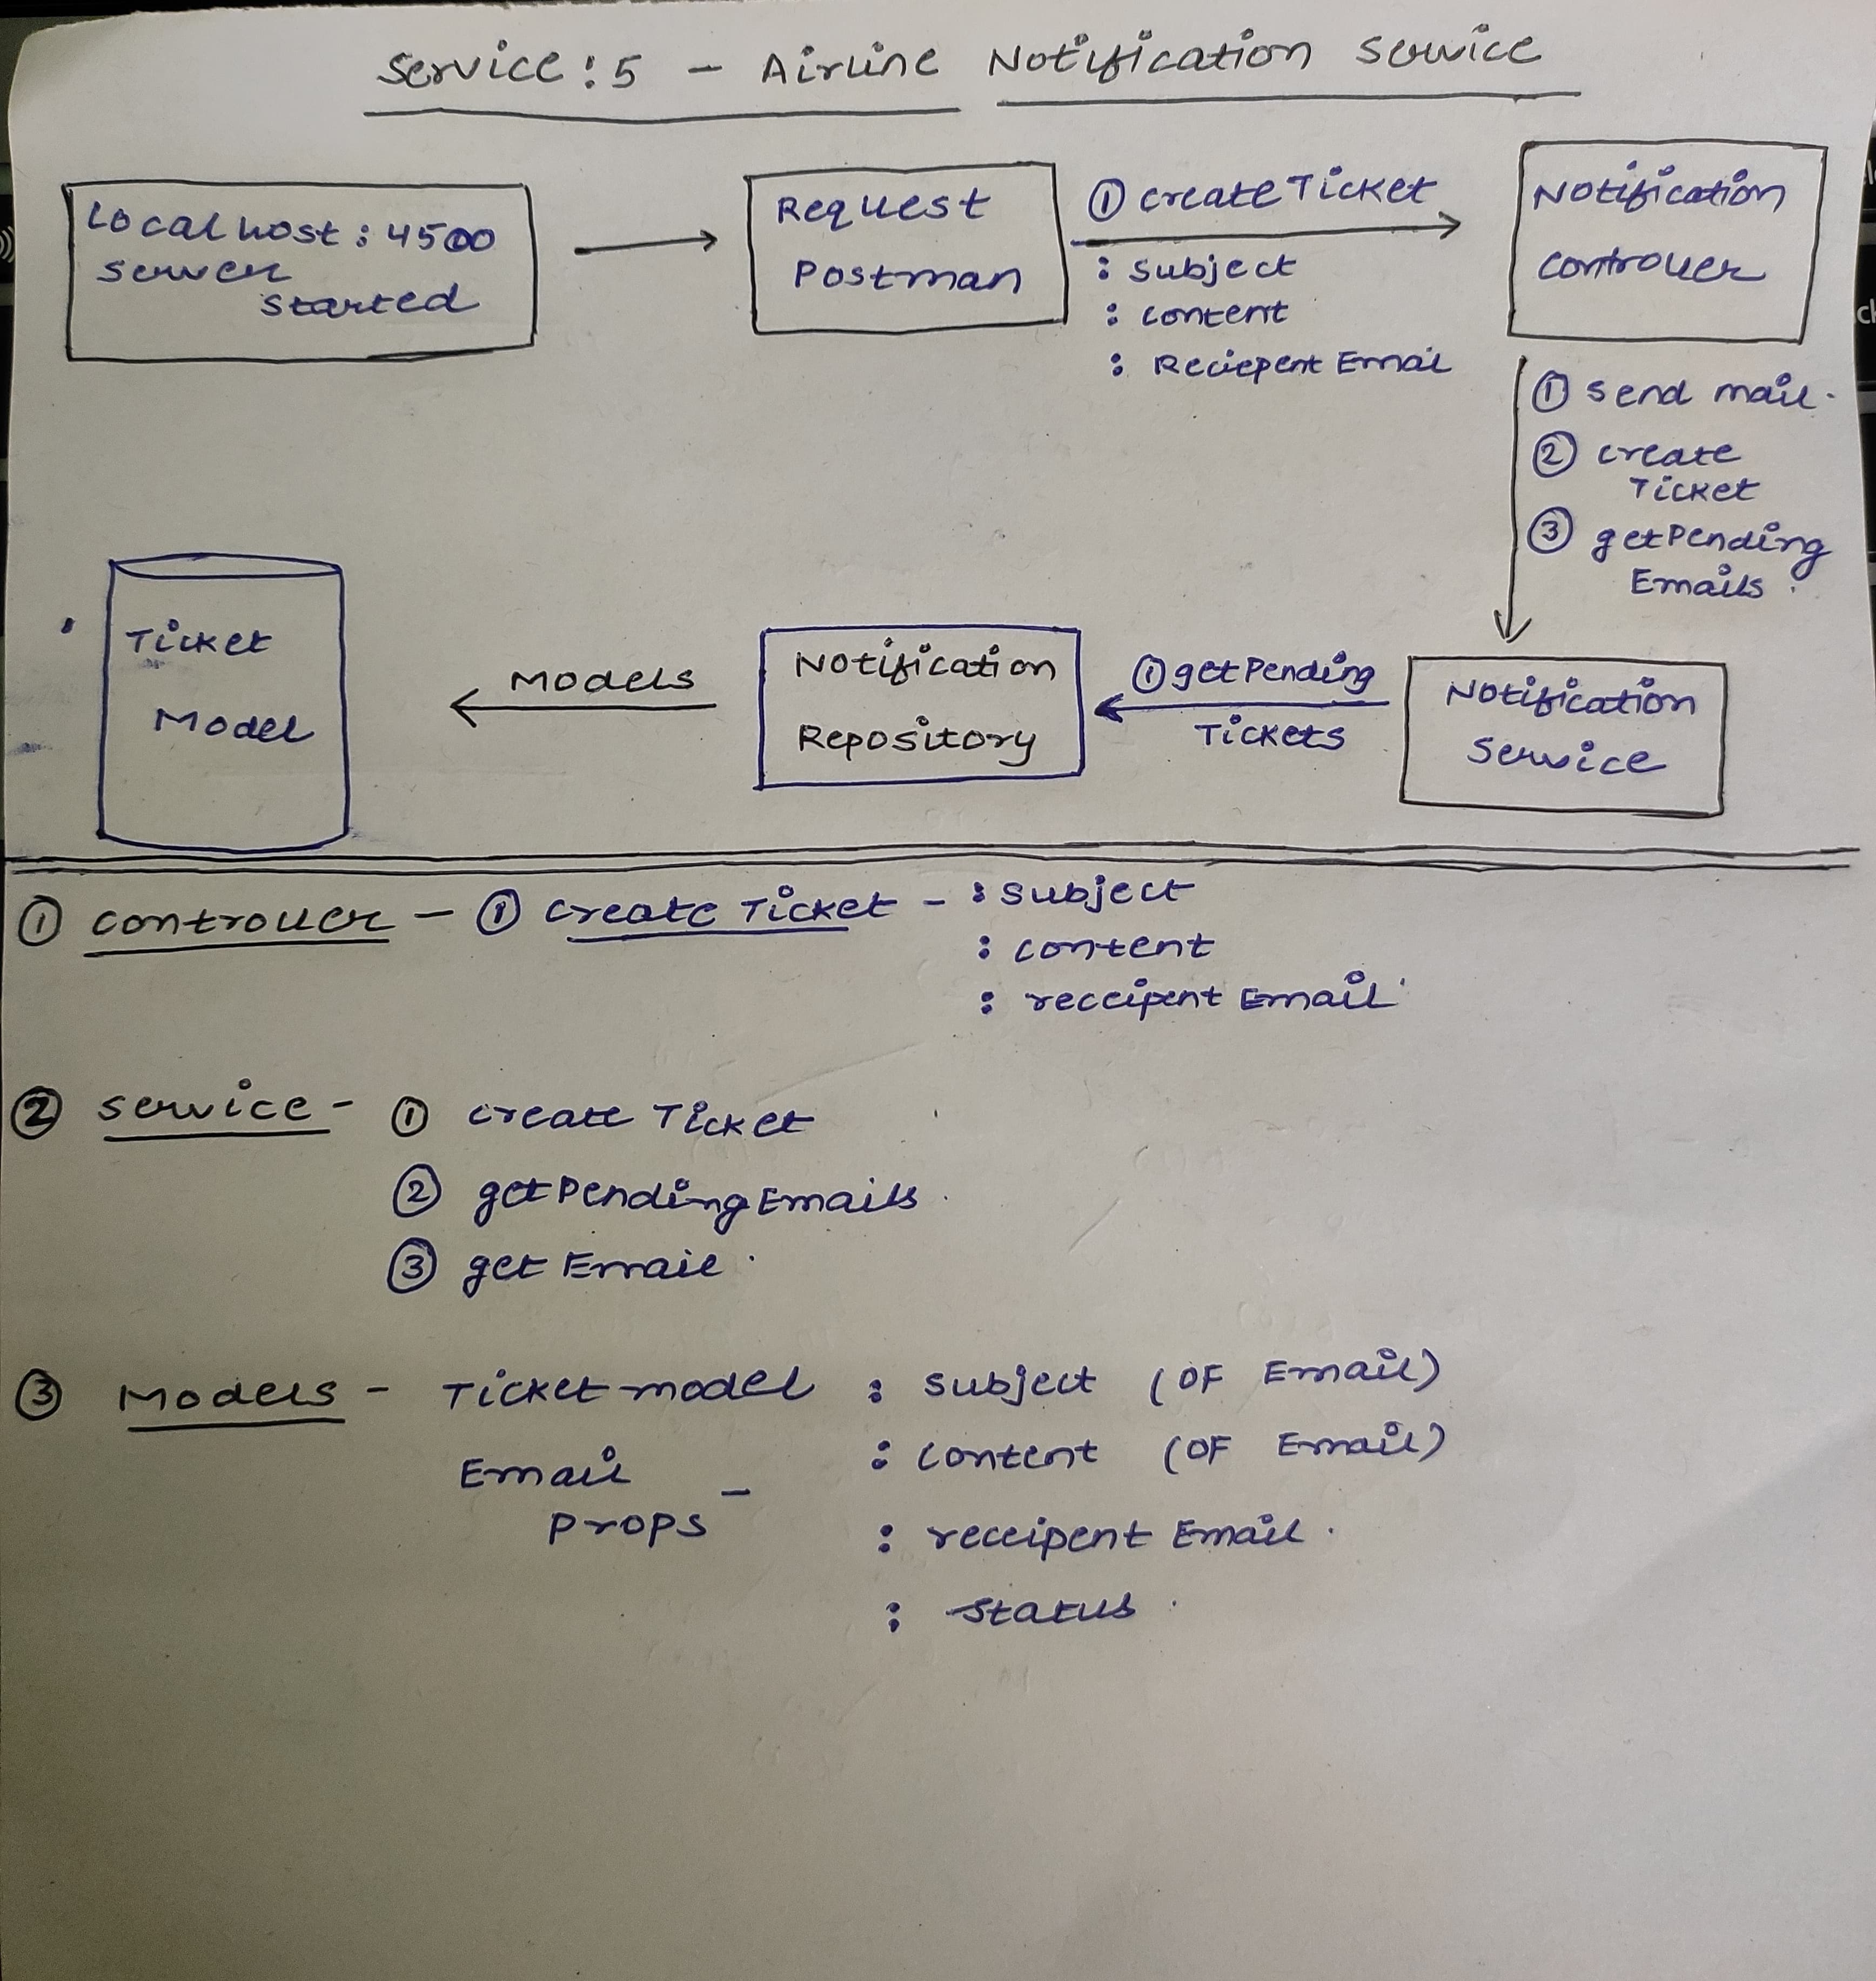 Service : 5 - Airline Notification Service
Localhost : 4500
server
started
Request
Postman
① create Ticket
: Subject
: content
: Reciepent Email
Notification
controller
① Send mail.
② create
Ticket
③ getPending
Emails.
Ticket
Model
Models
Notification
Repository
① getPending
Tickets
Notification
Service
① controller - ① create Ticket - : Subject
: content
: recceipent Email
② service - ① create Ticket
② getPendingEmails.
③ get Email.
③ Models - Ticket-model : Subject (OF Email)
Email : content (OF Email)
Props - : receipent Email.
: Status.